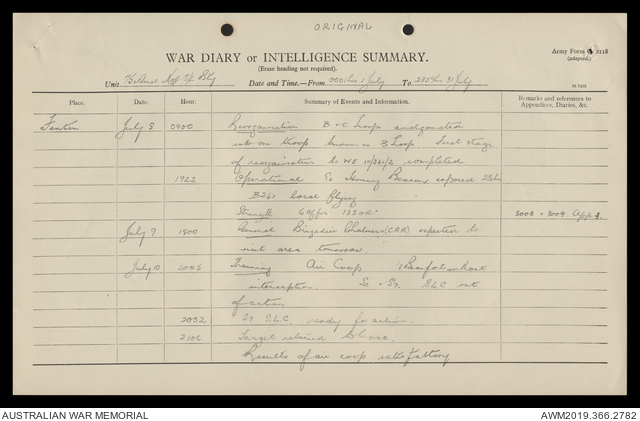 ORIGINAL
WAR DIARY or INTELLIGENCE SUMMARY.
(Erase heading not required).
Army Form C 2118
(adapted).
Unit Bty Date and Time.—From 0001hr 1 July To 2359hr 31 July
IN THE
Place. Date. Hour. Summary of Events and Information. Remarks and references to Appendices, Diaries, &c.
Fenton July 8 0900 Reorganisation B & C Troops amalgamation
into one troop known as B Troop First stage
of reorganisation to WE completed.
1922 Operational So Homing Beacon exposed
local flying
Strength 6 offrs 3008 & 3009 App.
July 9 1800 General Brigadier Chalmers (CRA) expected to
visit area tomorrow.
July 10 2005 Training Air Coop
interception. SLC not
of action
2052 SLC ready for action.
2106 Target returned
Results of air coop satisfactory
AUSTRALIAN WAR MEMORIAL AWM2019.366.2782